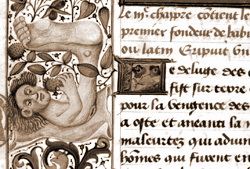 Le .mͤ. chapitre cōtient l
premier fondeur de babi
ou latin Eripuit vn
e deluge des
fist sur terre
pour la vengence des
a oste et aneanti la
maleurtez qui adun
hōmes qui furent en